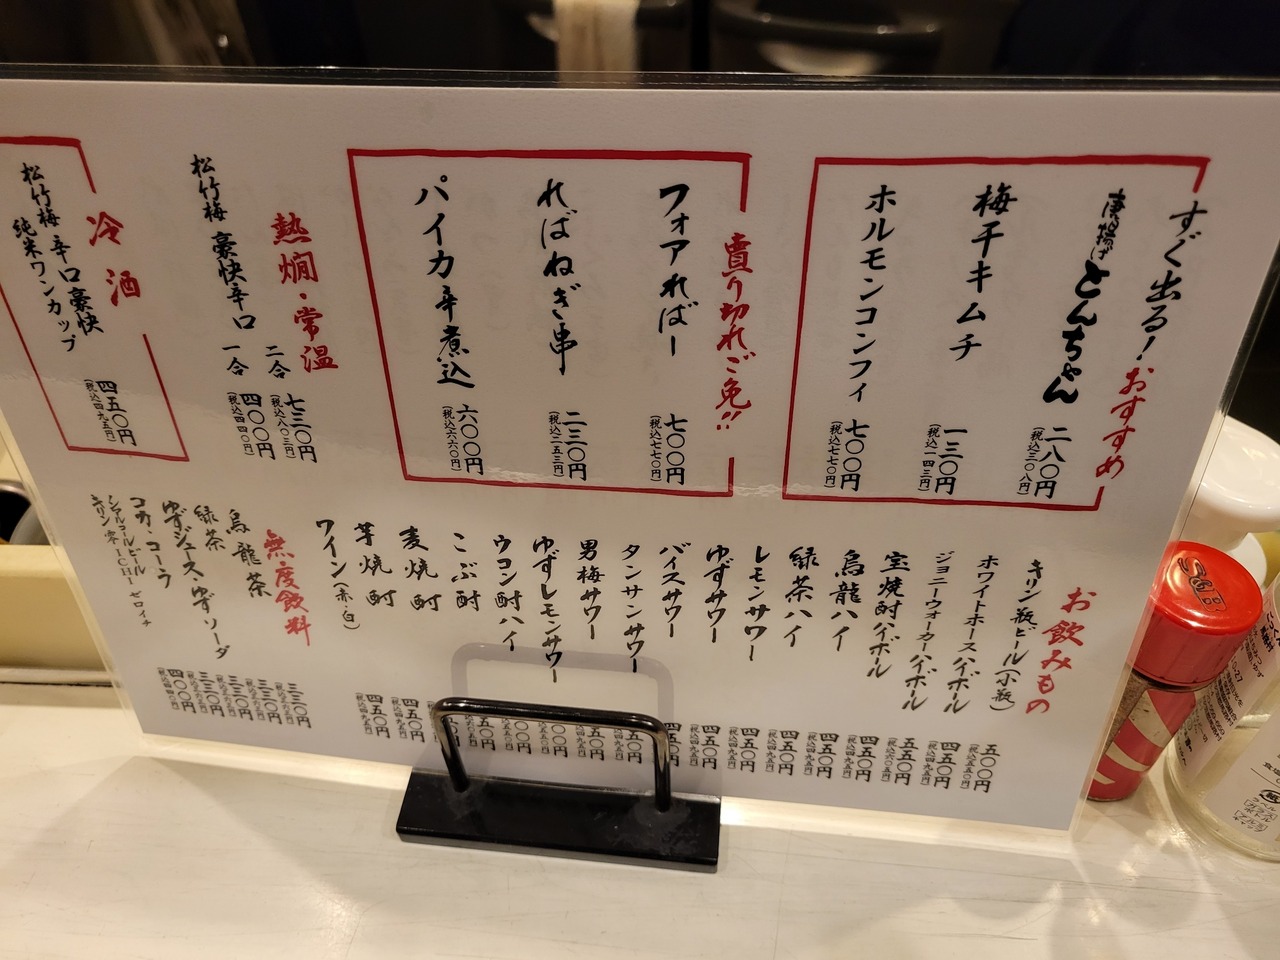 すぐ出る！おすすめ
唐揚げとんちゃん
二八〇円
(税込三〇八円)
梅干キムチ
一三〇円
(税込一四三円)
ホルモンコンフィ
七〇〇円
(税込七七〇円)
売り切れご免!!
フォアればー
七〇〇円
(税込七七〇円)
ればねぎ串
二三〇円
(税込二五三円)
パイカ辛煮込
六〇〇円
(税込六六〇円)
熱燗・常温
松竹梅 豪快辛口
二合 七三〇円
(税込八〇三円)
一合 四〇〇円
(税込四四〇円)
冷酒
松竹梅 辛口豪快
純米ワンカップ
四五〇円
(税込四九五円)
お飲みもの
キリン瓶ビール(小瓶)
五〇〇円
(税込五五〇円)
ホワイトホースハイボール
四五〇円
(税込四九五円)
ジョニーウォーカーハイボール
五五〇円
(税込六〇五円)
宝焼酎ハイボール
四五〇円
(税込四九五円)
烏龍ハイ
四五〇円
(税込四九五円)
緑茶ハイ
四五〇円
(税込四九五円)
レモンサワー
四五〇円
(税込四九五円)
ゆずサワー
四五〇円
(税込四九五円)
バイスサワー
五〇円
タンサンサワー
男梅サワー
ゆずレモンサワー
ウコン酎ハイ
こぶ酎
麦焼酎
芋焼酎
四五〇円
(税込四九五円)
ワイン(赤・白)
四五〇円
(税込四九五円)
無度飲料
烏龍茶
三三〇円
緑茶
三三〇円
ゆずジュース・ゆずソーダ
三三〇円
コカ・コーラ
三三〇円
ノンアルコールビール
キリン 零ICHI ゼロイチ
四〇〇円
(税込四四〇円)